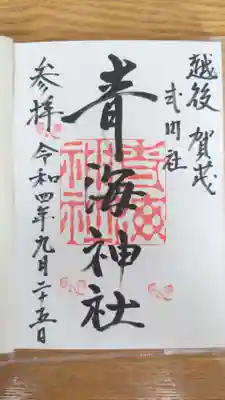 越後 賀茂
式内社
青海神社
青海神社
参拝
令和四年九月二十五日